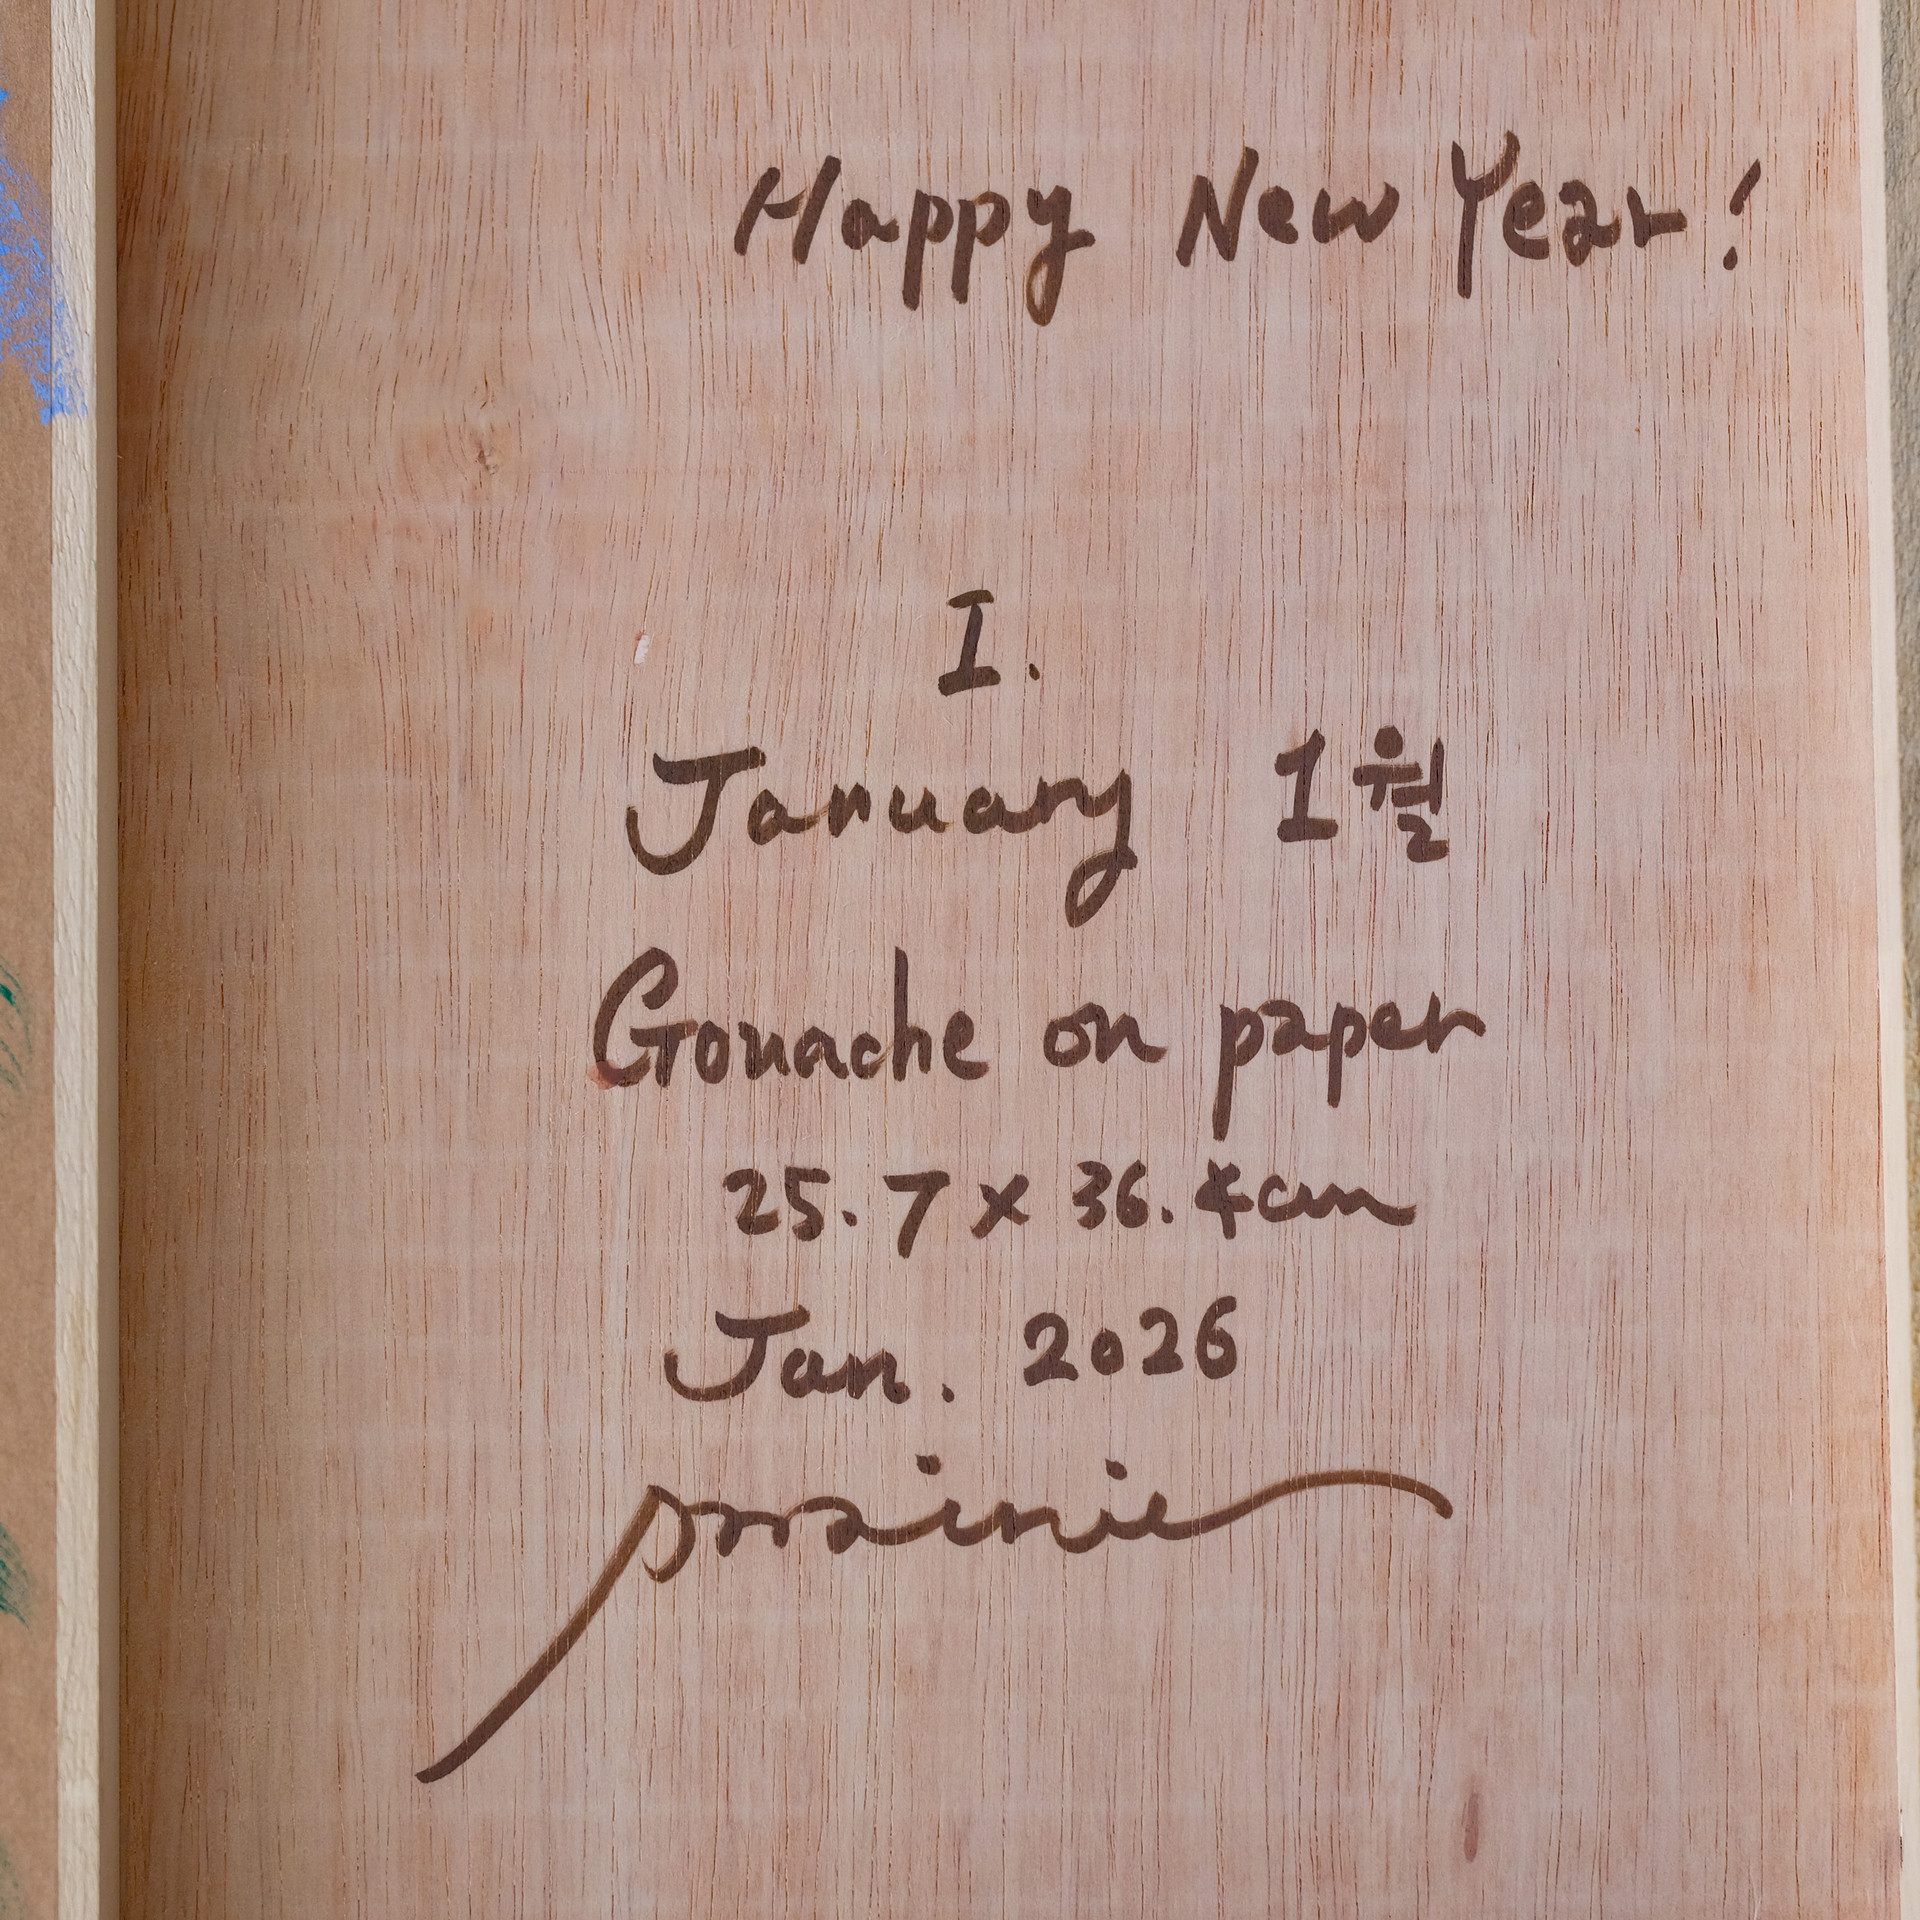 Happy New Year!
I.
January 1월
Gouache on paper
25.7 x 36.4cm
Jan. 2026
prairie